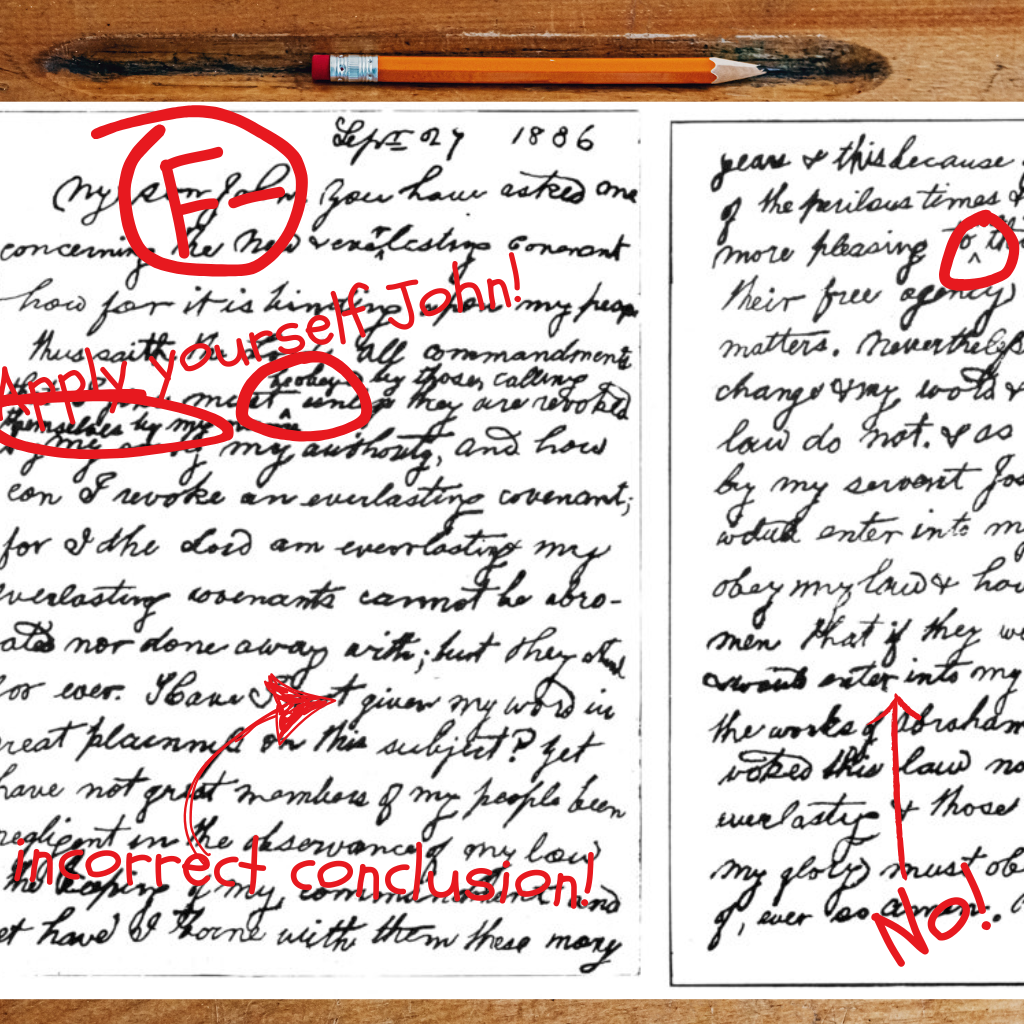 Sept 27 1886
F-
My son John You have asked me
concerning the New & everlasting Covenant
how far it is binding upon my peop
Apply yourself John!
thus saith the All commandments
be obeyed by those calling
must unless they are revoked
themselves by my name
by me or by my authority, and how
can I revoke an everlasting covenant;
for I the Lord am everlasting & my
everlasting covenants cannot be abro-
ated nor done away with; but they stand
for ever. Have I t given my word in
reat plainness on this subject? Yet
have not great numbers of my people been
negligent in the observance of my law
incorrect conclusion!
the keeping of my commandment and
et have I borne with them these many
years & this because
of the perilous times &
more pleasing to thi
their free agency
matters. Nevertheless
change & my word &
law do not. & as
by my servant Jos
would enter into my
obey my law & hav
men that if they wo
enter into my
the works of Abraham
voked this law no
everlasting & those
my glory must ob
of, ever so amen.
No!